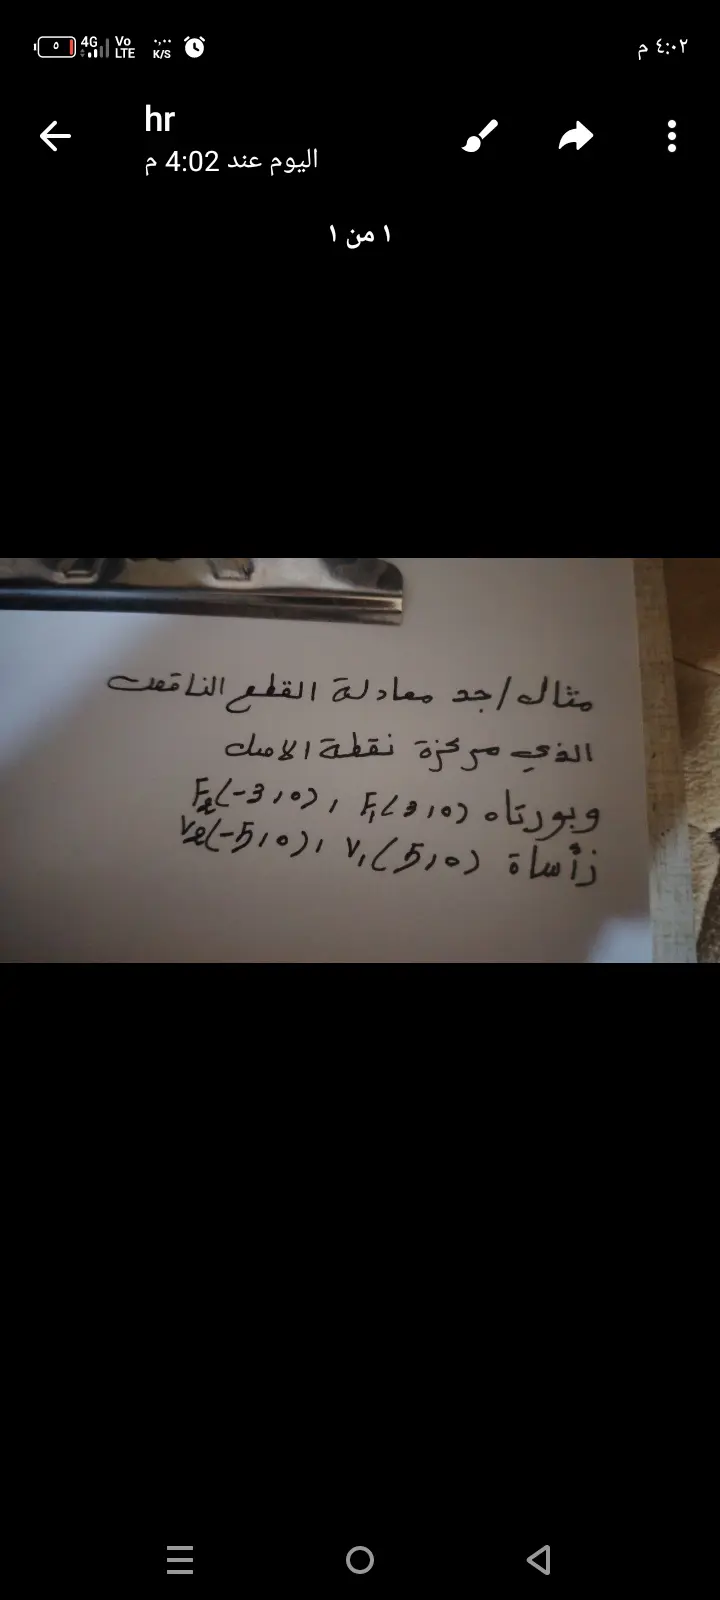 ٤:٠٢ م
4G
Vo LTE
٠,٠٠ K/S
٥
hr
اليوم عند 4:02 م
١ من ١
مثال/جد معادلة القطع الناقص
الذي مركزة نقطة الاصل
وبورتاه F₁(3,0) , F₂(-3,0)
رأساة V₁(5,0) , V₂(-5,0)